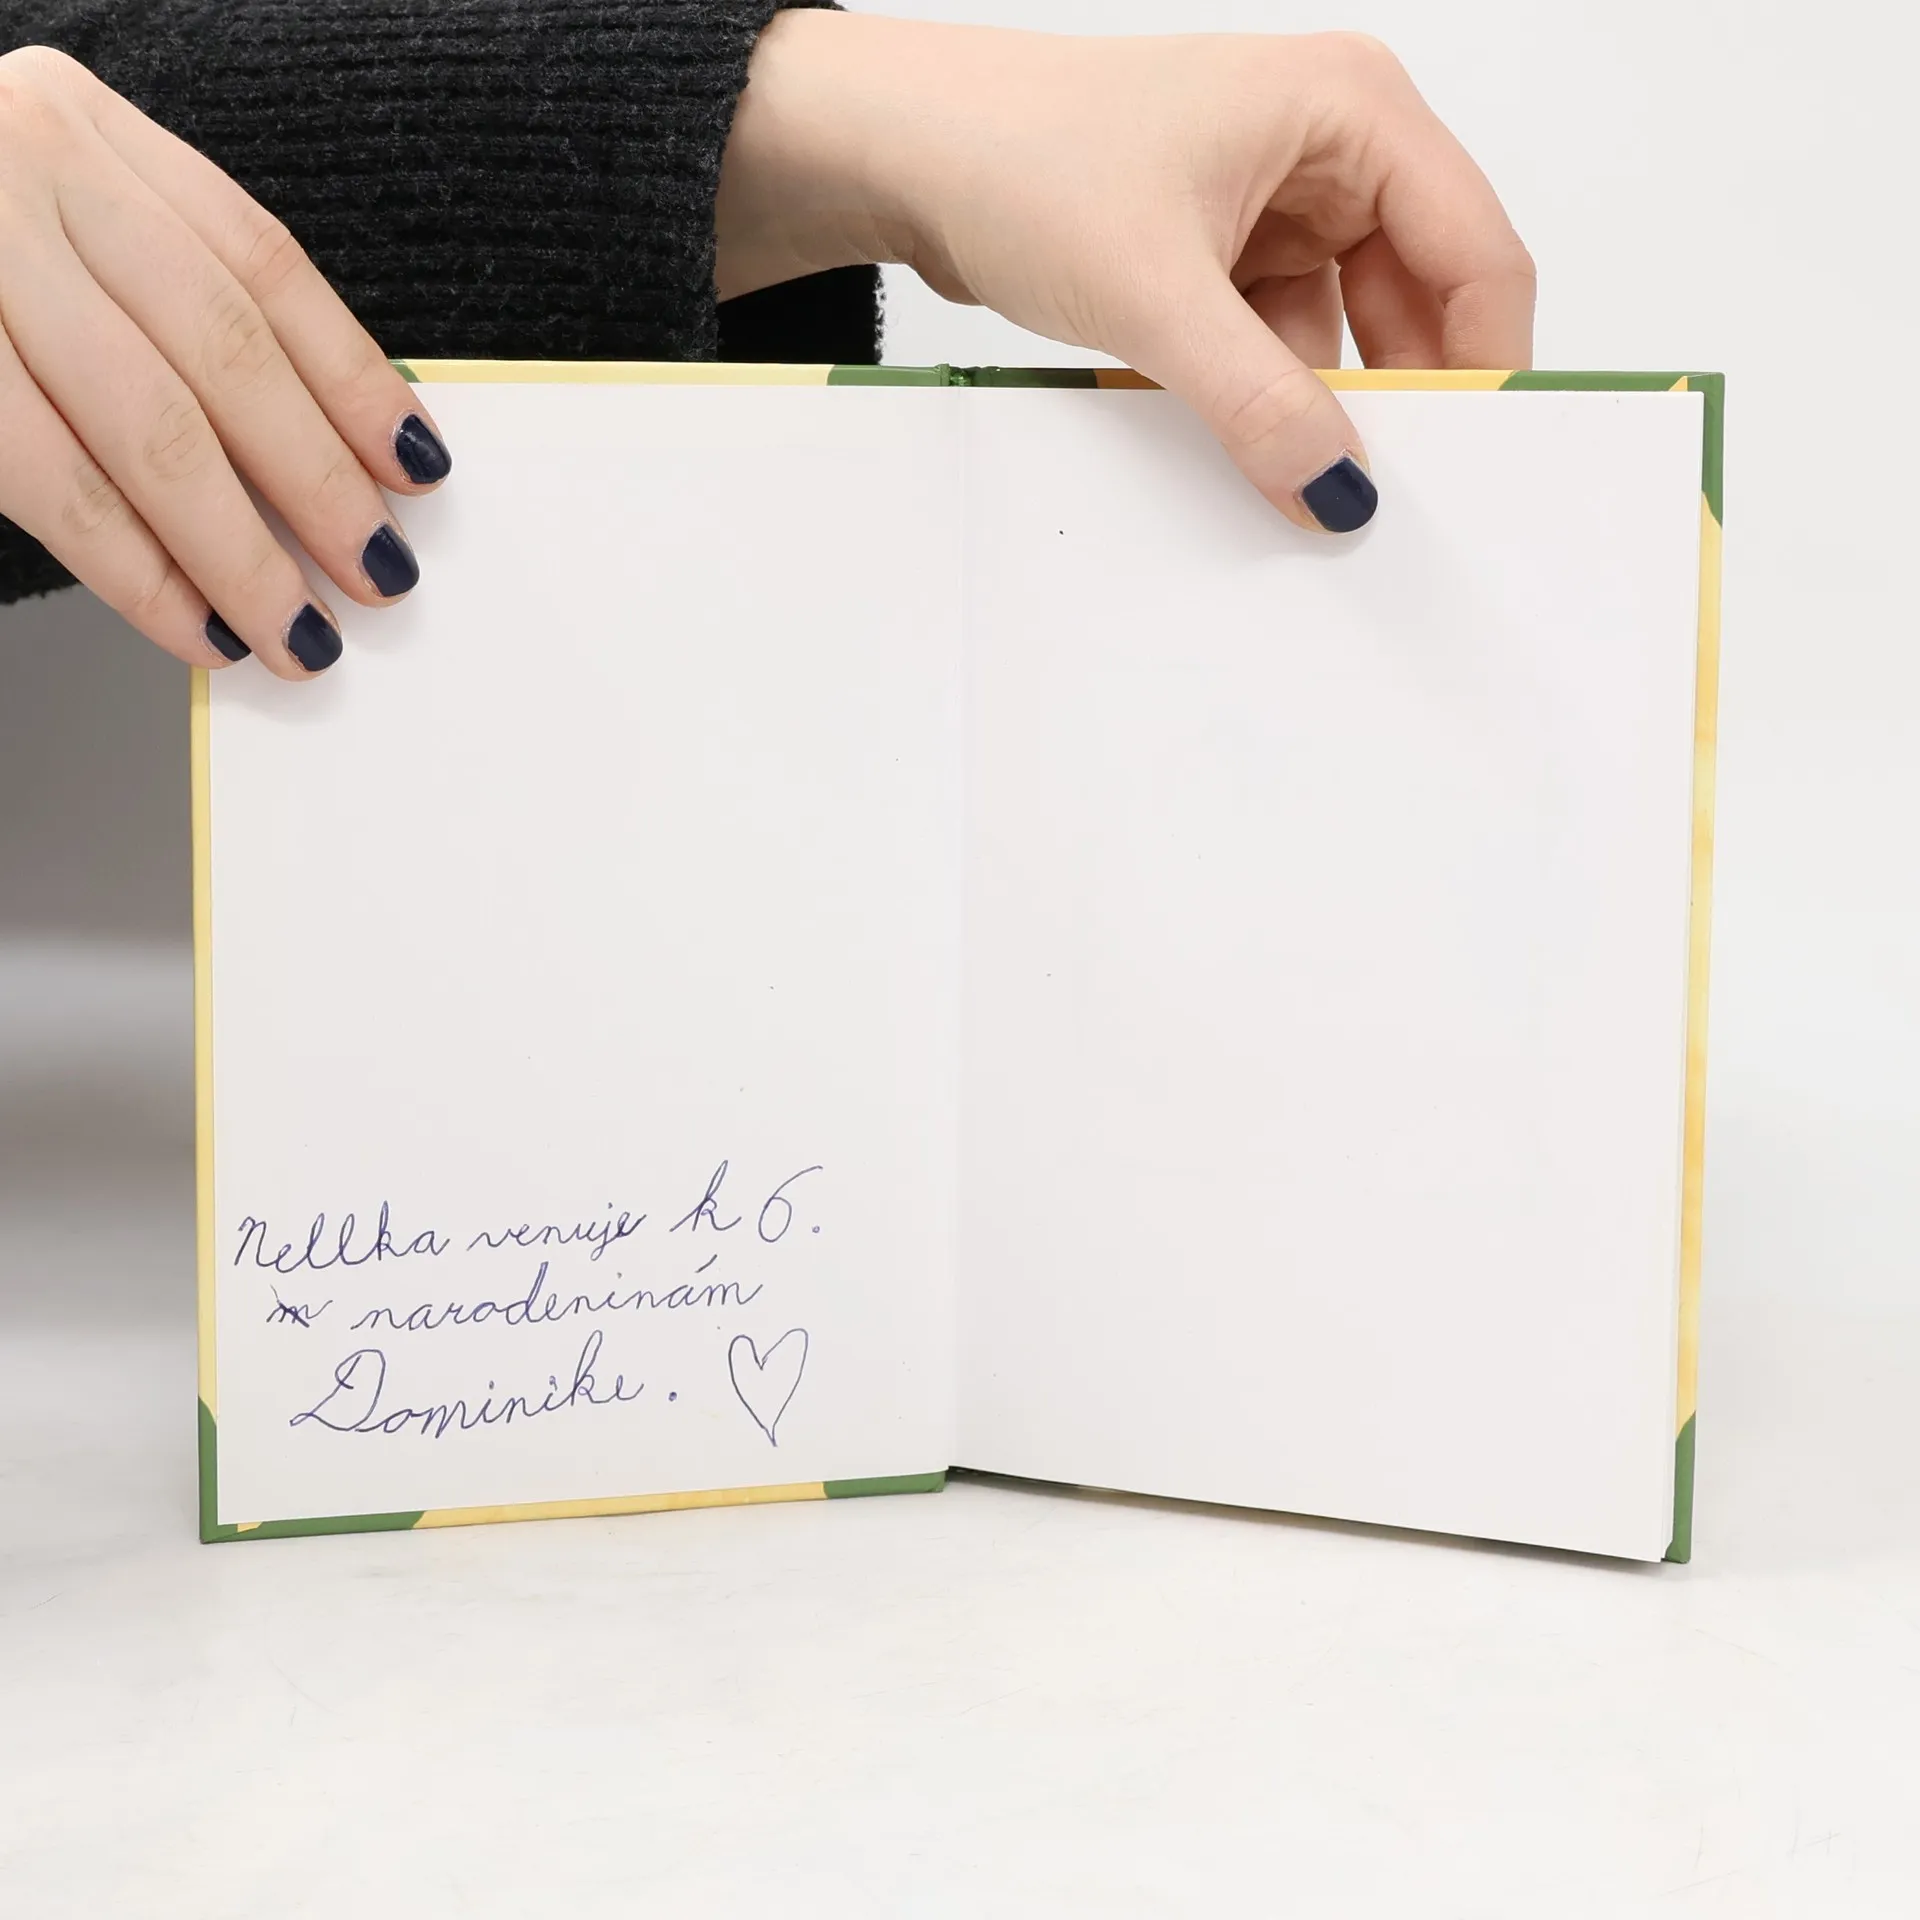 Nellka venuje k 6.
narodeninám
Dominike.